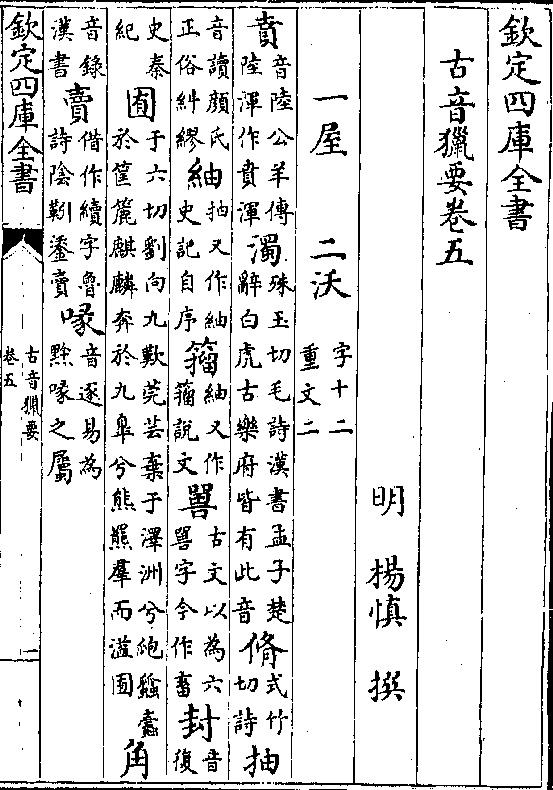 欽定四庫全書
古音獵要卷五
明 楊慎 撰
一屋 二沃 字十二重文二
賁音陸公羊傳陸渾作賁渾濁殊玉切毛詩漢書孟子楚辭白虎古樂府皆有此音脩式竹切詩抽
音讀顔氏正俗糾繆紬抽又作紬史記自序籀紬又作籀說文嘼古文以為六嘼字今作畜封音復
史秦紀囿于六切劉向九歎莞芸棄于澤洲兮瓟蠡蠹於筐簏麒麟奔於九臯兮熊羆羣而溢囿角
音錄漢書賣借作續字魯詩陰靷鋈賣喙音逐易為黔喙之屬
欽定四庫全書
古音獵要
卷五